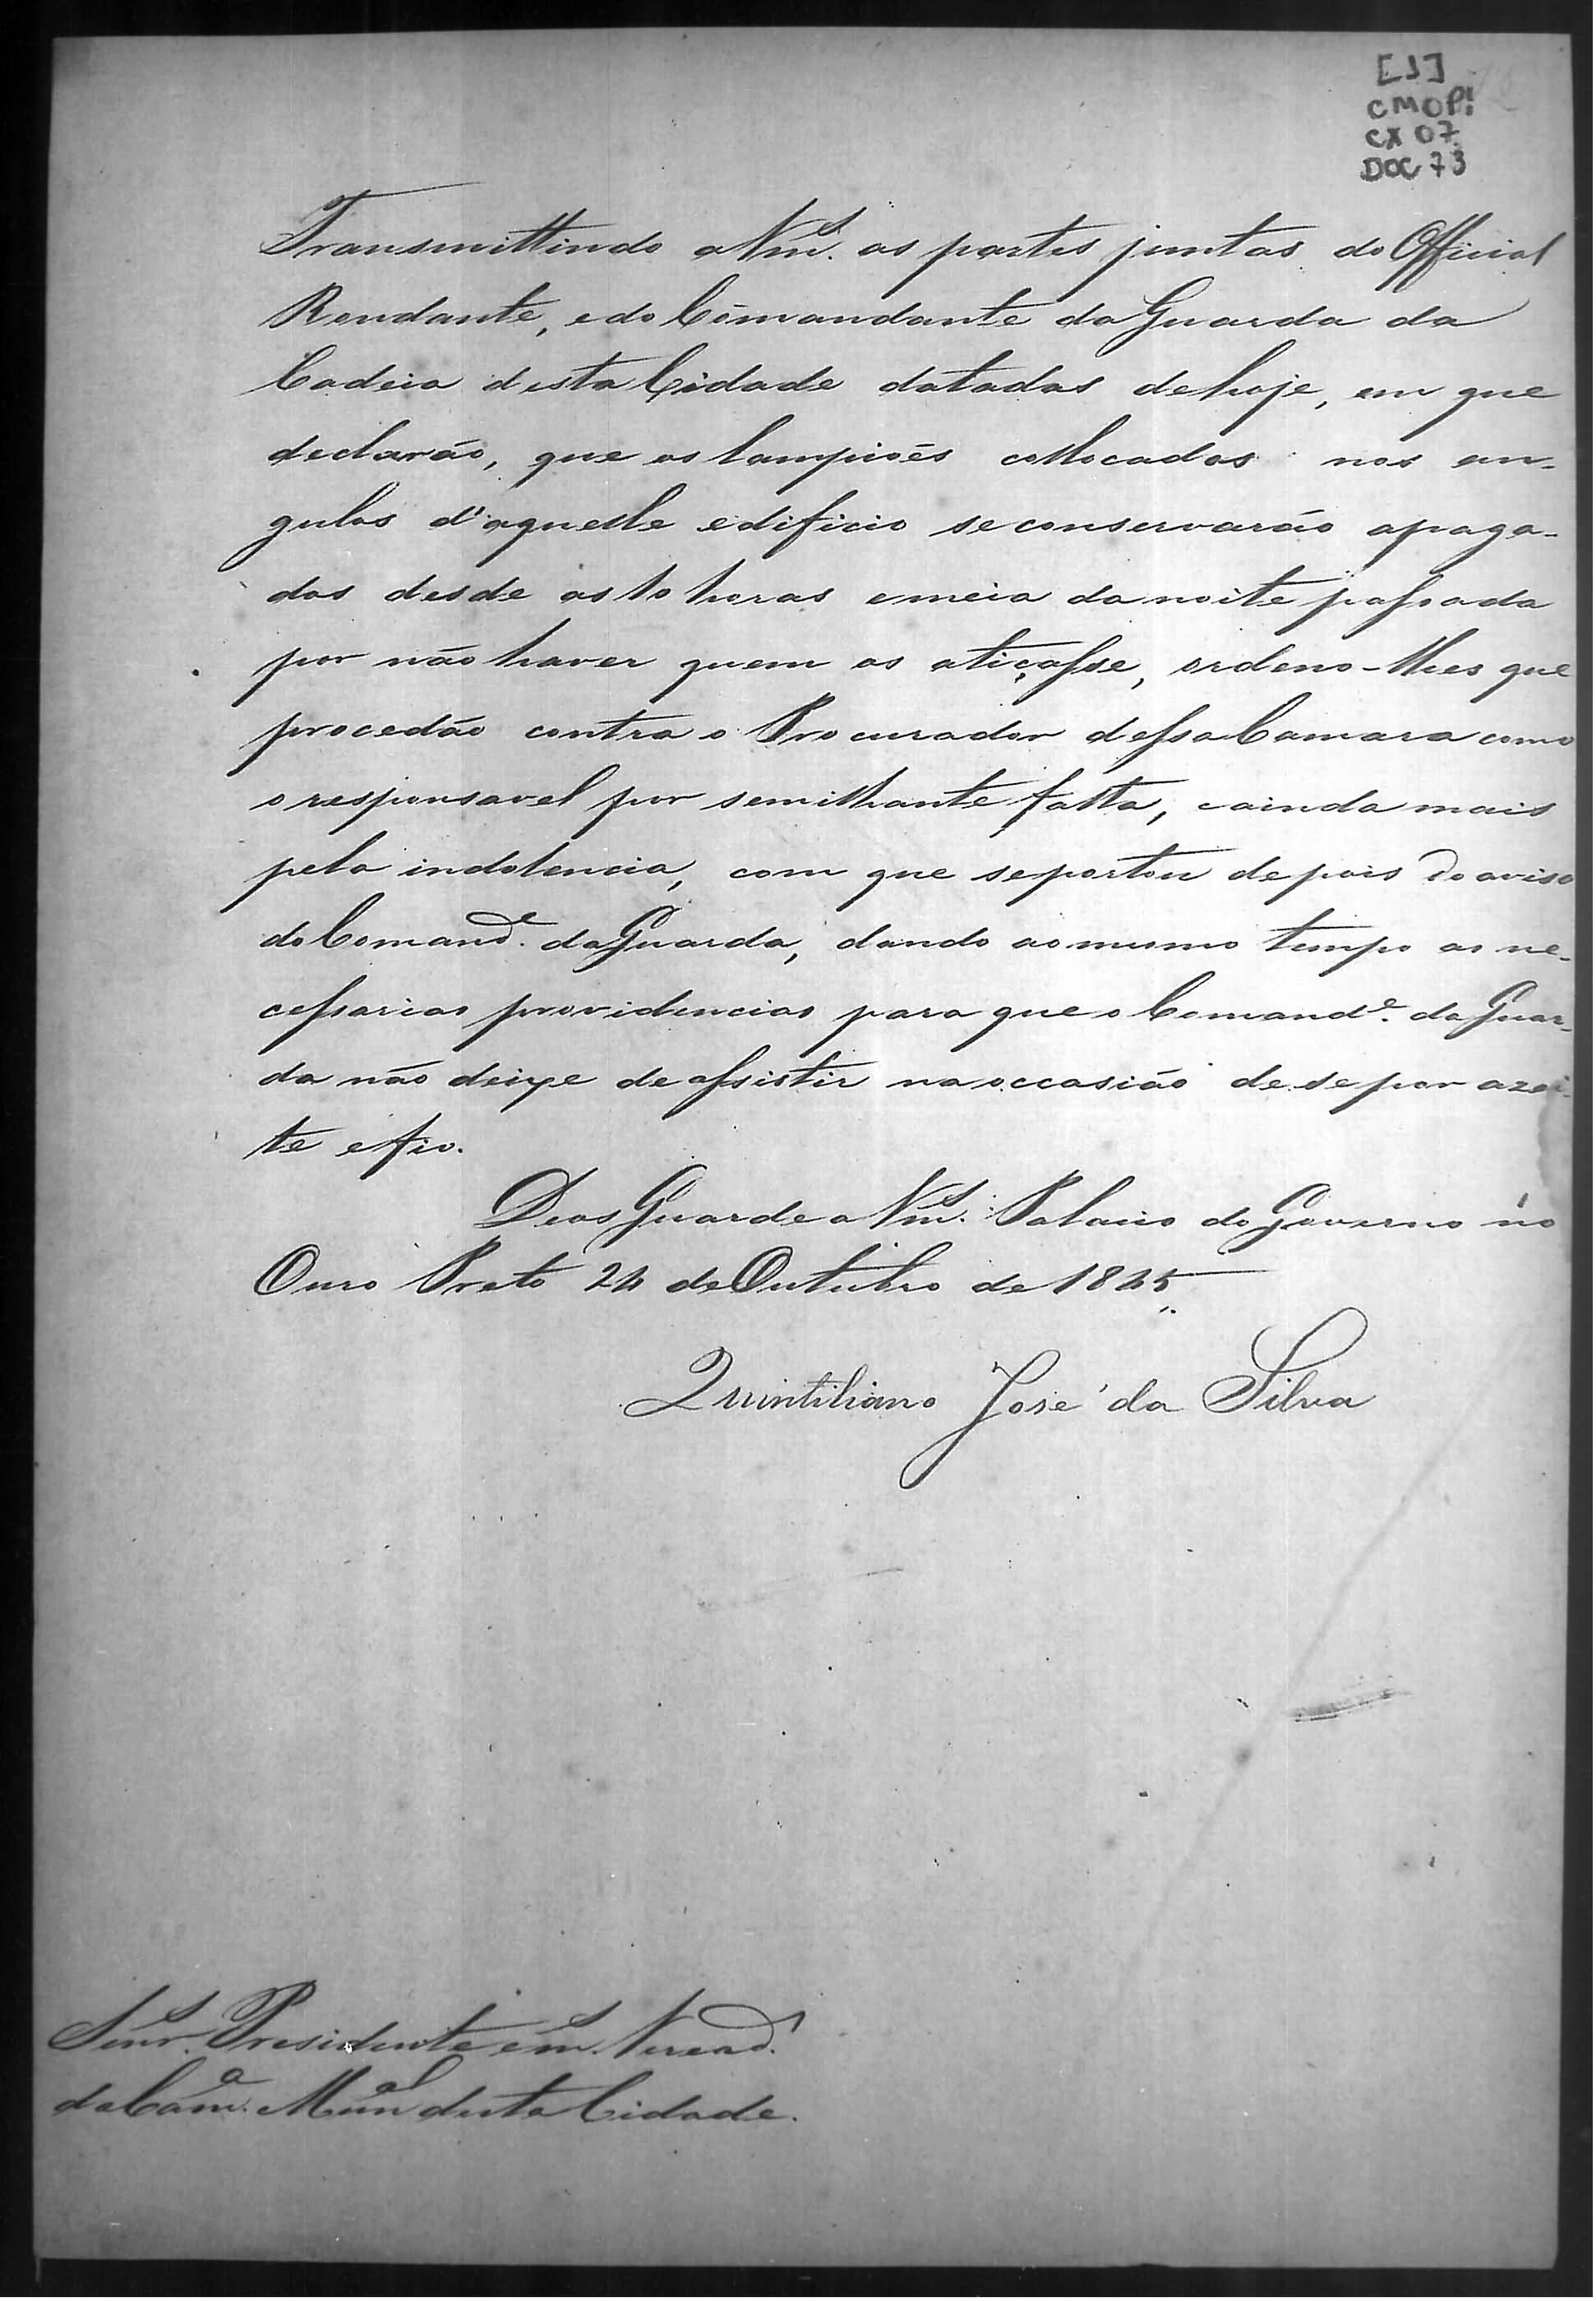 [1]
CMOP!
CX 07
DOC 73
Transmittindo a Vm.ˢ as partes juntas do Official
Rondante, e do Comandante da Guarda da
Cadeia desta Cidade datadas de hoje, em que
declarão, que os lampioẽs collocados nos an-
gulos d'aquelle edificio se conservarão apaga-
dos desde as 10 horas e meia da noite passada
por não haver quem os atiçasse, ordeno-lhes que
procedão contra o Procurador dessa Camara como
o responsavel por semilhante falta, e ainda mais
pela indolencia, com que se portou depois do aviso
do Comand.ᵉ da Guarda, dando ao mesmo tempo as ne-
cessarias providencias para que o Comand.ᵉ da Guar-
da não deixe de assistir na occasião de se por azei-
te e fio.
Deos Guarde a Vm.ˢ Palacio do Governo no
Ouro Preto 24 de Outubro de 1845
Quintiliano José da Silva
Senr.ˢ Presidente e m.ˢ Veread.ˢ
da Cam.ᵃ Mun.ᵃˡ desta Cidade.